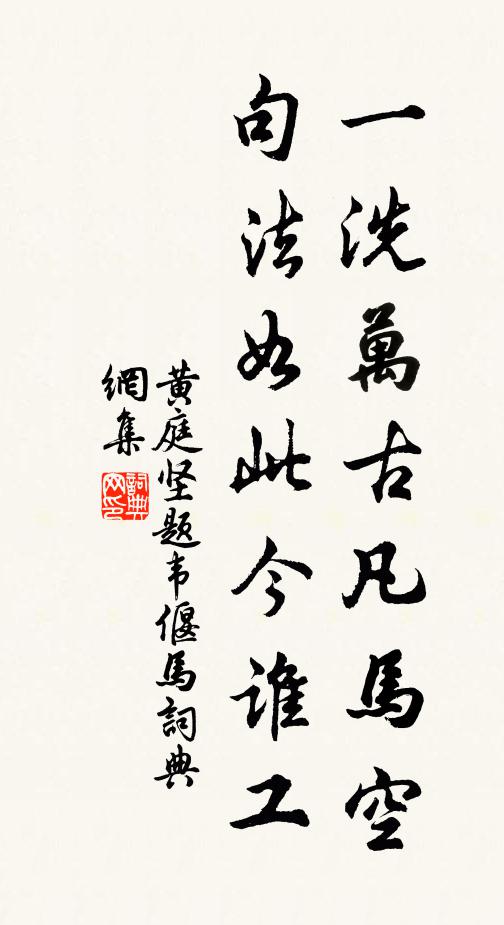 一洗萬古凡馬空
句法如此今誰工
黄庭坚题韦偃馬詞典
網集
詞典網印